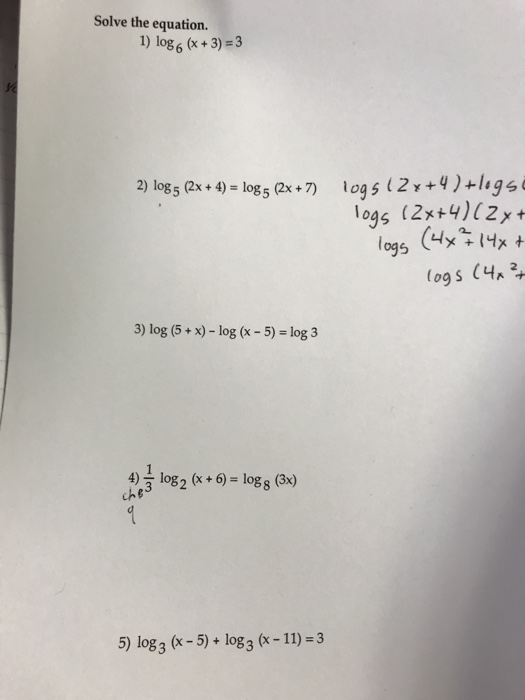 Solve the equation.
1) log₆ (x + 3) = 3
2) log₅ (2x + 4) = log₅ (2x + 7)
log₅ (2x+4)+log₅(
log₅ (2x+4)(2x+
log₅ (4x²+14x+
log₅ (4x²+
3) log (5 + x) – log (x – 5) = log 3
4) 1/3 log₂ (x + 6) = log₈ (3x)
9
5) log₃ (x – 5) + log₃ (x – 11) = 3